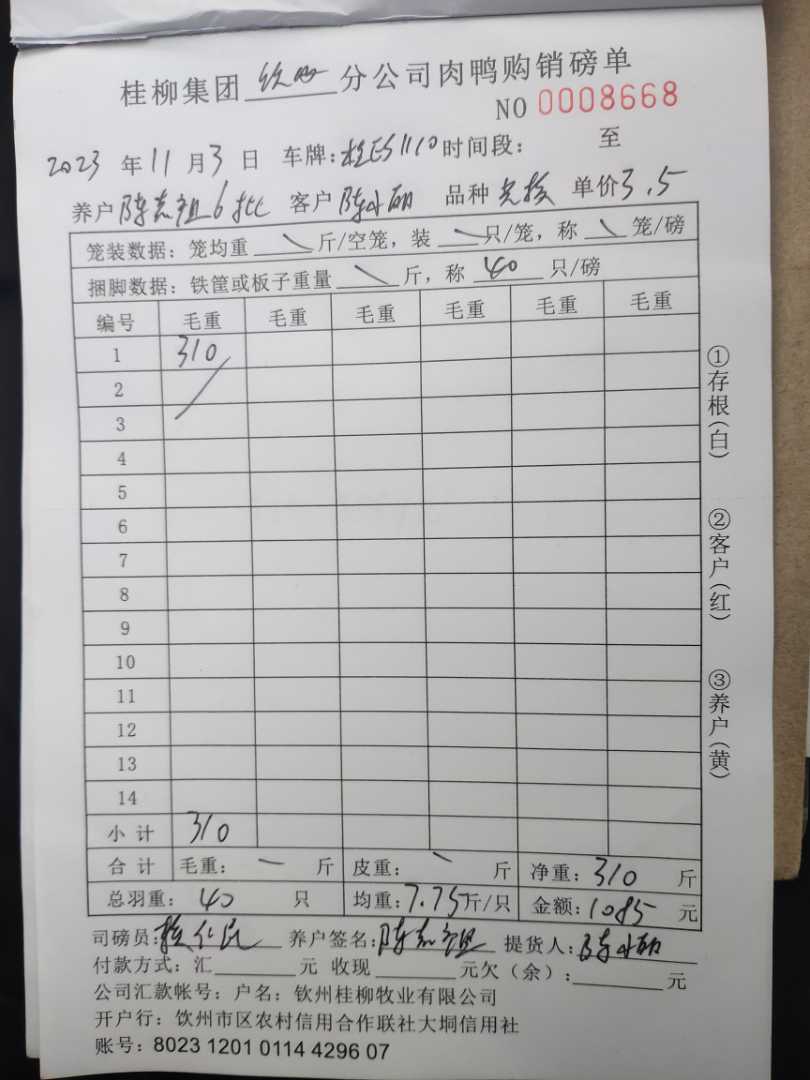 桂柳集团 钦州 分公司肉鸭购销磅单
NO 0008668
2023 年 11 月 3 日 车牌: 1110 时间段: 至
养户 陈志祖6批 客户 陈小丽 品种 单价 3.5
笼装数据: 笼均重 \ 斤/空笼, 装 \ 只/笼, 称 \ 笼/磅
捆脚数据: 铁筐或板子重量 \ 斤, 称 40 只/磅
编号 毛重 毛重 毛重 毛重 毛重 毛重
1 310
2
3
4
5
6
7
8
9
10
11
12
13
14
小计 310
合计 毛重: — 斤 皮重: \ 斤 净重: 310 斤
总羽重: 40 只 均重: 7.75 斤/只 金额: 1085 元
司磅员: 养户签名: 陈志祖 提货人: 陈小丽
付款方式: 汇 元 收现 元欠(余): 元
公司汇款帐号: 户名: 钦州桂柳牧业有限公司
开户行: 钦州市区农村信用合作联社大垌信用社
账号: 8023 1201 0114 4296 07
①存根(白)
②客户(红)
③养户(黄)